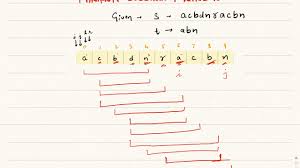 Given → S → acbdnracbn
t → abn
0 1 2 3 4 5 6 7 8 9
a c b d n r a c b n
i j